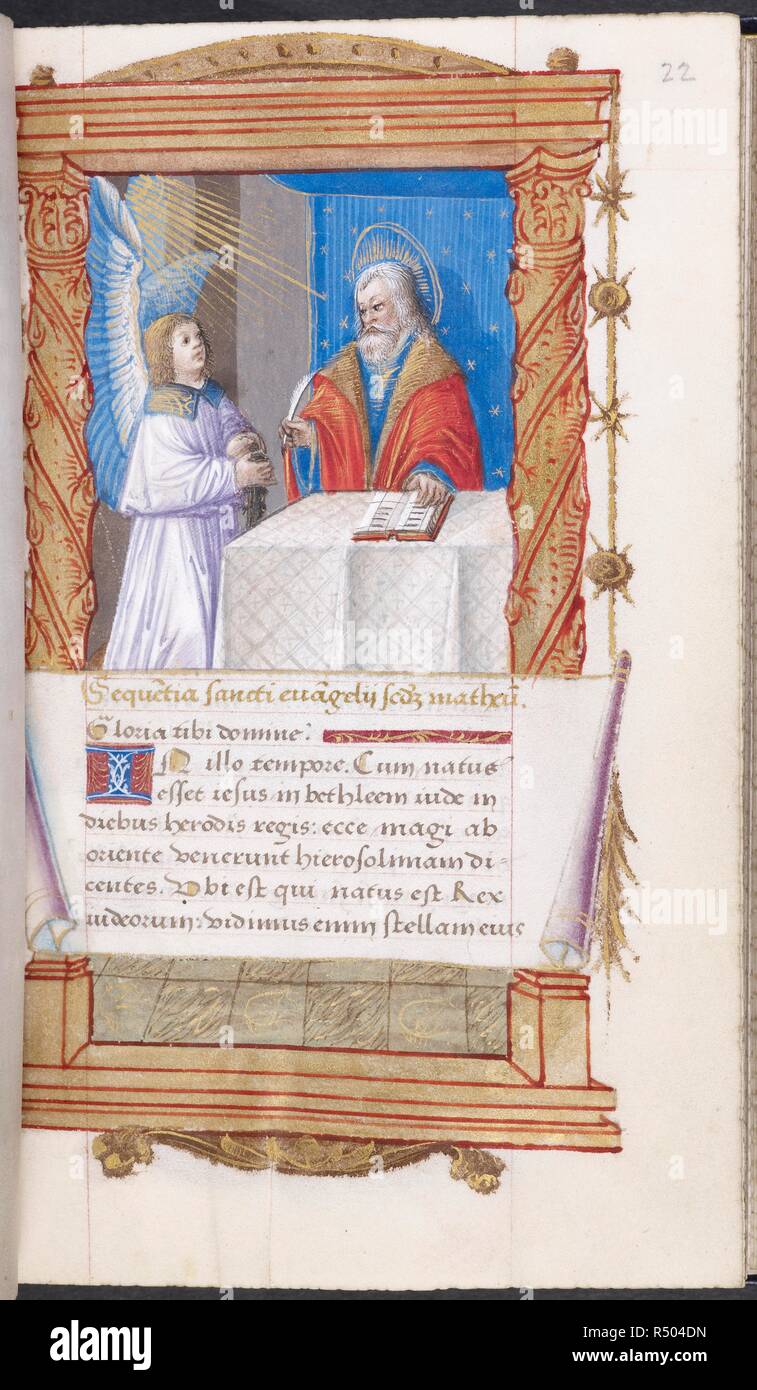 22
Sequẽtia sancti euãgelij scdʒ matheũ.
Gloria tibi domine.
IN illo tempore. Cum natus
esset iesus in bethleem iude in
diebus herodis regis: ecce magi ab
oriente venerunt hierosolimam di-
centes. Vbi est qui natus est Rex
iudeorum: vidimus enim stellam eius
alamy
alamy
Image ID: R504DN
www.alamy.com